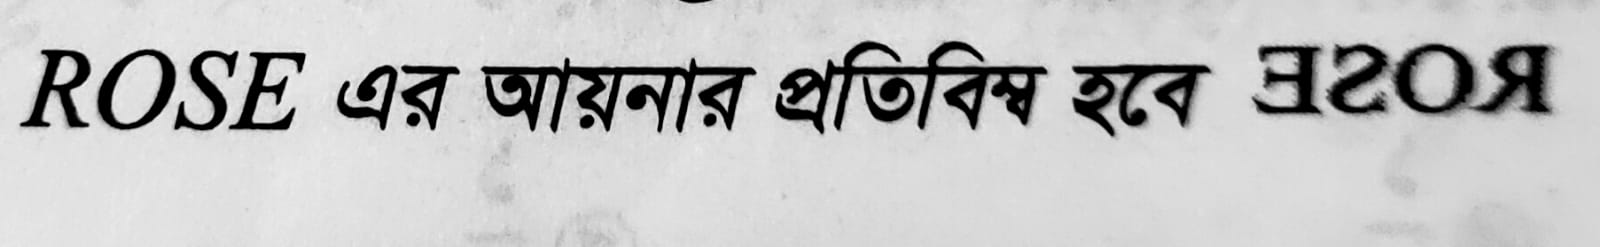 ROSE এর আয়নার প্রতিবিম্ব হবে ƎƧOЯ